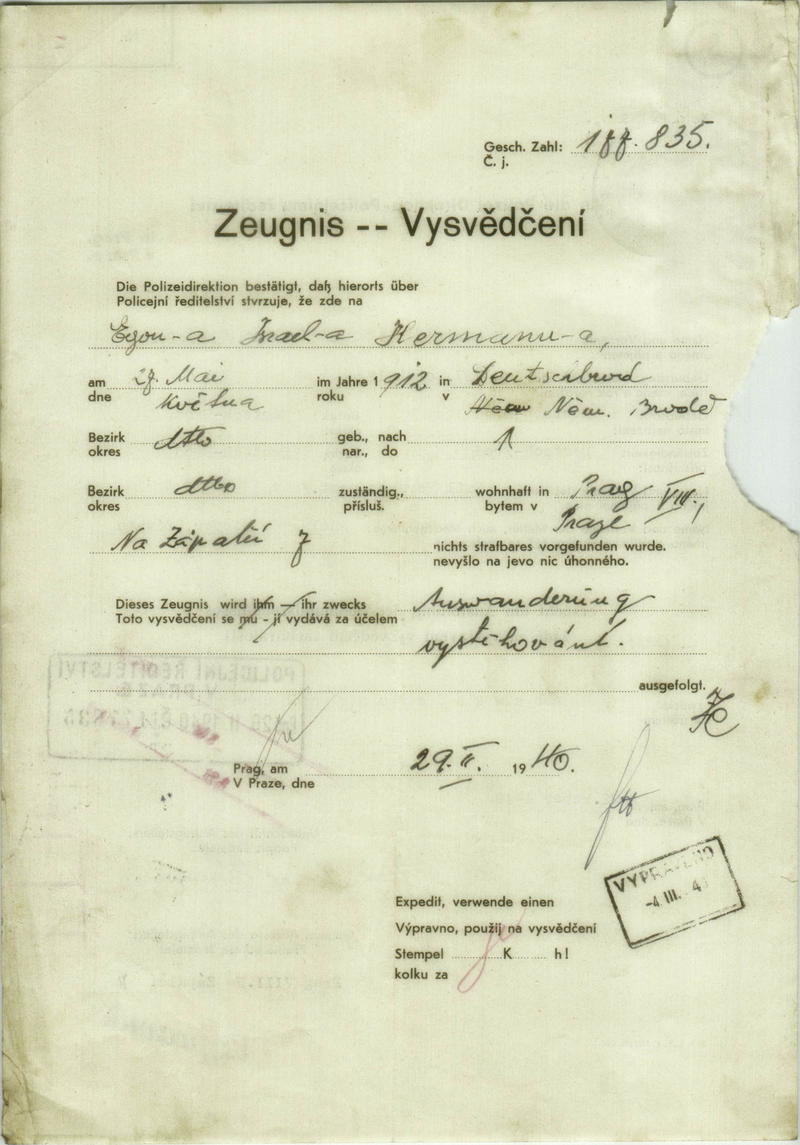 Gesch. Zahl: 177.835.
Č. j.
Zeugnis -- Vysvědčení
Die Polizeidirektion bestätigt, daß hierorts über
Policejní ředitelství stvrzuje, že zde na
Egon-a Israel-a Hermann-a,
am 27. Mai im Jahre 1912 in Deutschbrod
dne května roku v Něm. Brodě
Bezirk dtto geb., nach
okres nar., do
Bezirk dtto zuständig., wohnhaft in Prag VIII.,
okres přísluš. bytem v Praze
Na Zápalčí 7 nichts strafbares vorgefunden wurde.
nevyšlo na jevo nic úhonného.
Dieses Zeugnis wird ihm — ihr zwecks Auswanderung
Toto vysvědčení se mu - jí vydává za účelem
vystěhování.
ausgefolgt.
Prag, am 29. II. 1940.
V Praze, dne
VYPRAVENO
-4. III. 4
Expedit, verwende einen
Výpravno, použij na vysvědčení
Stempel K h!
kolku za